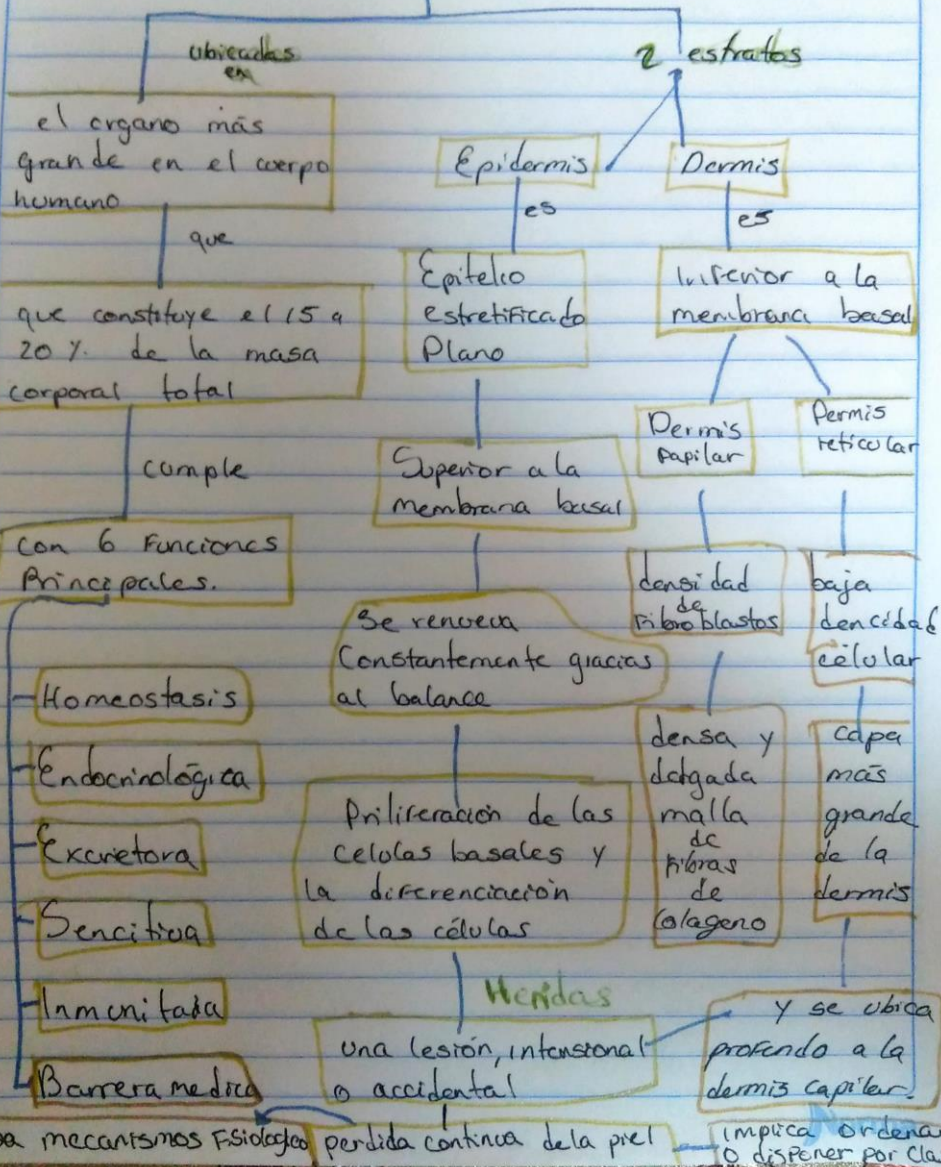 ubicadas
en
2 estratos
el organo más
grande en el cuerpo
humano
que
que constituye el 15 a
20 %. de la masa
corporal total
cumple
con 6 Funciones
Principales.
Homeostasis
Endocrinológica
Excretora
Sencitiva
Inmunitada
Barrera medica
Epidermis
es
Epitelio
estretificado
Plano
Superior a la
membrana basal
Se renueva
Constantemente gracias
al balance
Priliferación de las
celulas basales y
la diferenciación
de las células
Heridas
una lesión, intensional
o accidental
Dermis
es
Inferior a la
membrana basal
Dermis
papilar
densidad
de
Fibroblastos
densa y
delgada
malla
de
fibras
de
Colageno
Dermis
reticular
baja
dencidad
célular
capa
más
grande
de la
dermis
y se ubica
profundo a la
dermis capilar.
mecanismos Fisiologico
perdida continua de la piel
implica ordenar
o disponer por cla